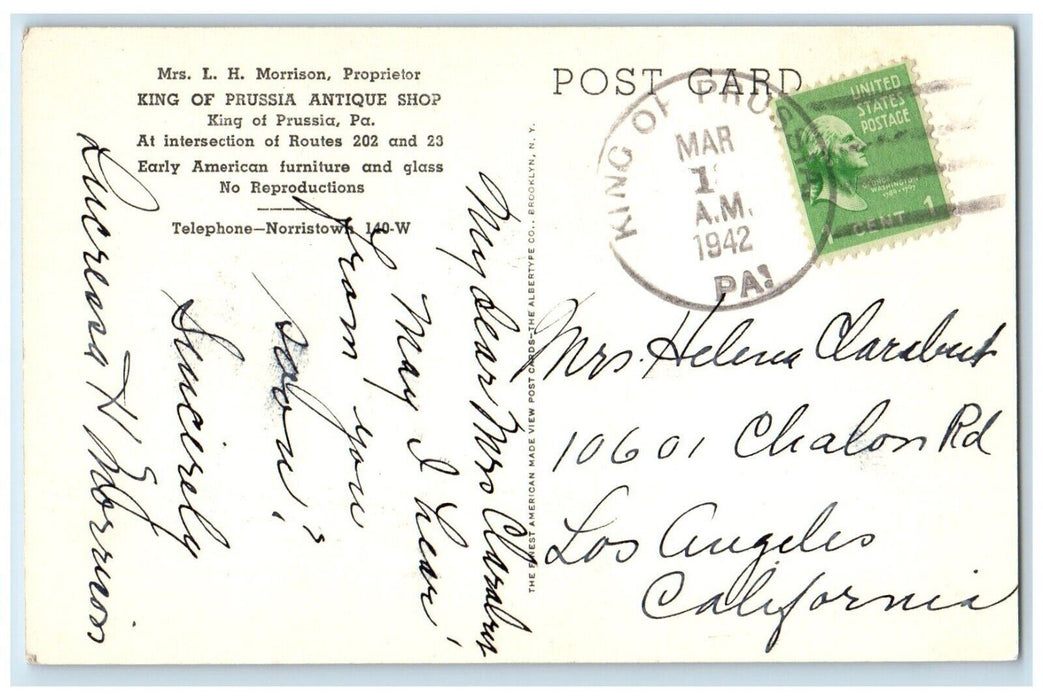 Mrs. L. H. Morrison, Proprietor
KING OF PRUSSIA ANTIQUE SHOP
King of Prussia, Pa.
At intersection of Routes 202 and 23
Early American furniture and glass
No Reproductions
Telephone—Norristown 140-W
My dear Mrs Clarabut
May I hear
from you
soon?
Sincerely
Lucressa H Morrison
THE FINEST AMERICAN MADE VIEW POST CARDS—THE ALBERTYPE CO., BROOKLYN, N. Y.
POST CARD
KING OF PRUSSIA
MAR
A.M.
1942
PA.
UNITED
STATES
POSTAGE
WASHINGTON
1789-1797
1 CENT 1
Mrs. Helena Clarabut
10601 Chalon Rd
Los Angeles
California